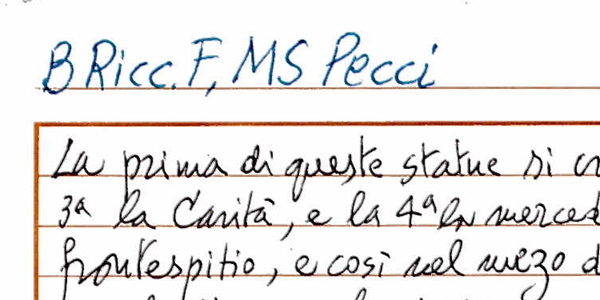 B Ricc. F, MS Pecci
La prima di queste statue si
3ª la Carità, e la 4ª la
frontespitio, e così nel mezo